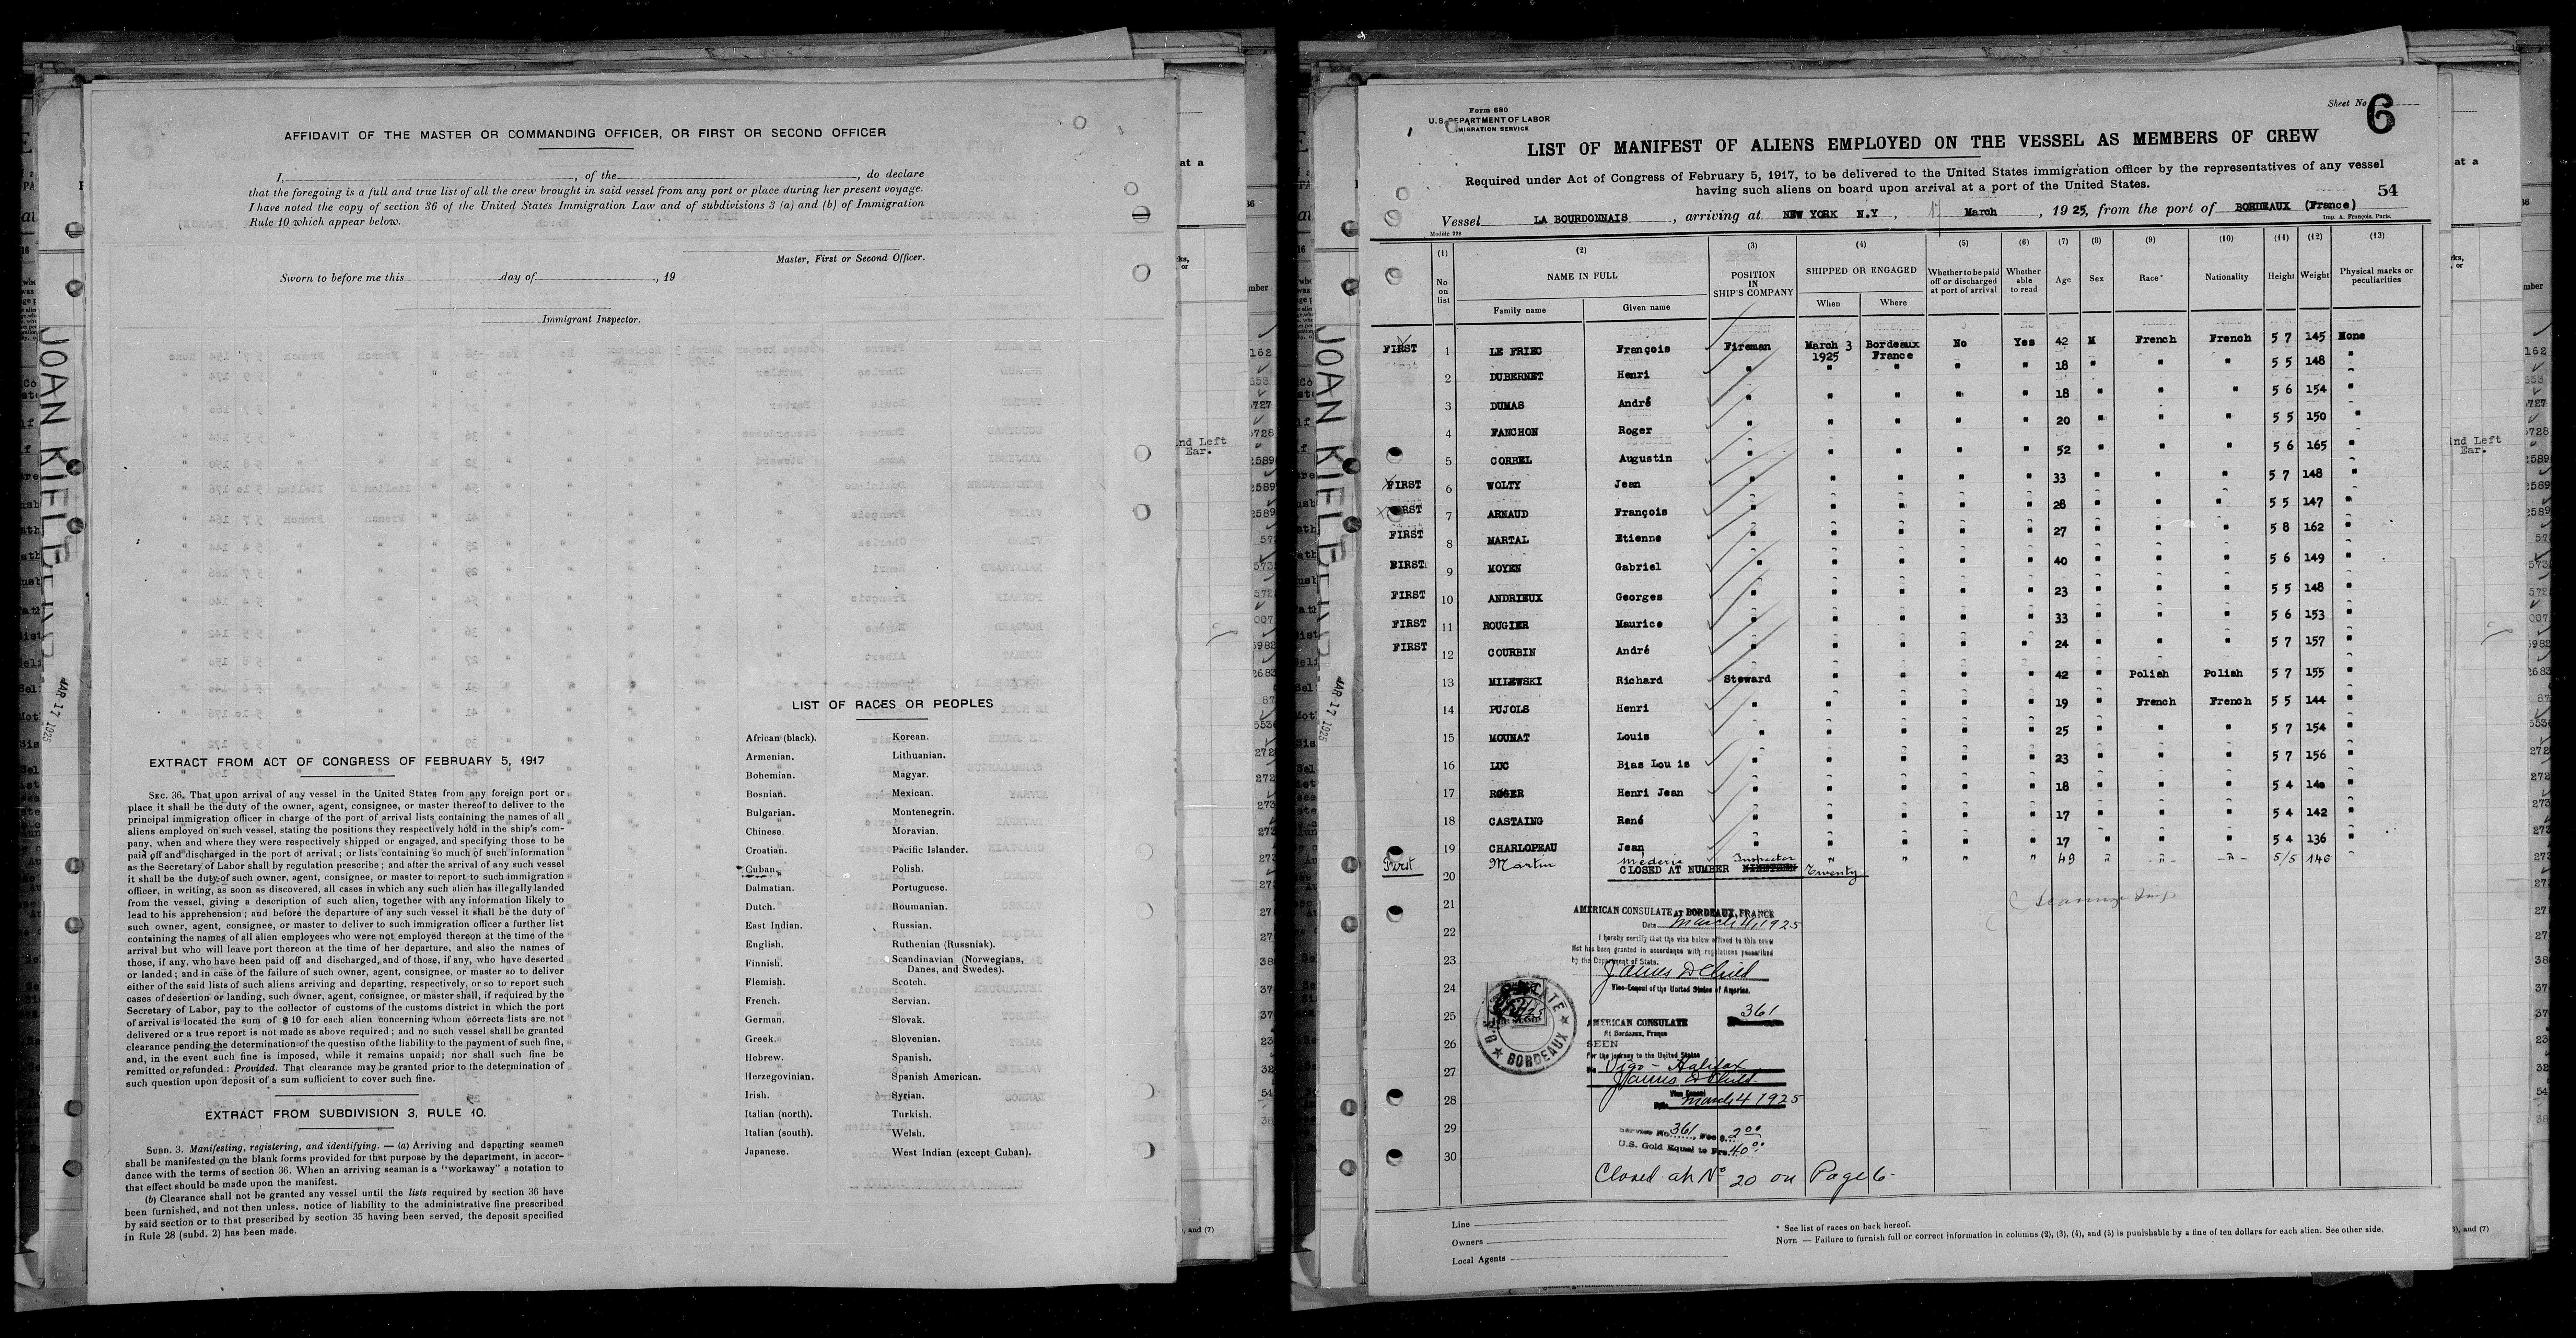 AFFIDAVIT OF THE MASTER OR COMMANDING OFFICER, OR FIRST OR SECOND OFFICER
I, , of the , do declare
that the foregoing is a full and true list of all the crew brought in said vessel from any port or place during her present voyage.
I have noted the copy of section 36 of the United States Immigration Law and of subdivisions 3 (a) and (b) of Immigration
Rule 10 which appear below.
Master, First or Second Officer.
Sworn to before me this day of , 19
Immigrant Inspector.
EXTRACT FROM ACT OF CONGRESS OF FEBRUARY 5, 1917
SEC. 36. That upon arrival of any vessel in the United States from any foreign port or
place it shall be the duty of the owner, agent, consignee, or master thereof to deliver to the
principal immigration officer in charge of the port of arrival lists containing the names of all
aliens employed on such vessel, stating the positions they respectively hold in the ship's com-
pany, when and where they were respectively shipped or engaged, and specifying those to be
paid off and discharged in the port of arrival; or lists containing so much of such information
as the Secretary of Labor shall by regulation prescribe; and after the arrival of any such vessel
it shall be the duty of such owner, agent, consignee, or master to report to such immigration
officer, in writing, as soon as discovered, all cases in which any such alien has illegally landed
from the vessel, giving a description of such alien, together with any information likely to
lead to his apprehension; and before the departure of any such vessel it shall be the duty of
such owner, agent, consignee, or master to deliver to such immigration officer a further list
containing the names of all alien employees who were not employed thereon at the time of the
arrival but who will leave port thereon at the time of her departure, and also the names of
those, if any, who have been paid off and discharged, and of those, if any, who have deserted
or landed; and in case of the failure of such owner, agent, consignee, or master so to deliver
either of the said lists of such aliens arriving and departing, respectively, or so to report such
cases of desertion or landing, such owner, agent, consignee, or master shall, if required by the
Secretary of Labor, pay to the collector of customs of the customs district in which the port
of arrival is located the sum of $ 10 for each alien concerning whom corrects lists are not
delivered or a true report is not made as above required; and no such vessel shall be granted
clearance pending the determination of the question of the liability to the payment of such fine,
and, in the event such fine is imposed, while it remains unpaid; nor shall such fine be
remitted or refunded: Provided. That clearance may be granted prior to the determination of
such question upon deposit of a sum sufficient to cover such fine.
EXTRACT FROM SUBDIVISION 3, RULE 10.
SUBD. 3. Manifesting, registering, and identifying. — (a) Arriving and departing seamen
shall be manifested on the blank forms provided for that purpose by the department, in accor-
dance with the terms of section 36. When an arriving seaman is a "workaway" a notation to
that effect should be made upon the manifest.
(b) Clearance shall not be granted any vessel until the lists required by section 36 have
been furnished, and not then unless, notice of liability to the administrative fine prescribed
by said section or to that prescribed by section 35 having been served, the deposit specified
in Rule 28 (subd. 2) has been made.
LIST OF RACES OR PEOPLES
African (black). Korean.
Armenian. Lithuanian.
Bohemian. Magyar.
Bosnian. Mexican.
Bulgarian. Montenegrin.
Chinese. Moravian.
Croatian. Pacific Islander.
Cuban. Polish.
Dalmatian. Portuguese.
Dutch. Roumanian.
East Indian. Russian.
English. Ruthenian (Russniak).
Finnish. Scandinavian (Norwegians,
Danes, and Swedes).
Flemish. Scotch.
French. Servian.
German. Slovak.
Greek. Slovenian.
Hebrew. Spanish.
Herzegovinian. Spanish American.
Irish. Syrian.
Italian (north). Turkish.
Italian (south). Welsh.
Japanese. West Indian (except Cuban).
JOAN KIFLE
MAR 17 1925
nd Left
Ear.
Form 680
U.S. DEPARTMENT OF LABOR
IMMIGRATION SERVICE
Sheet No 6
LIST OF MANIFEST OF ALIENS EMPLOYED ON THE VESSEL AS MEMBERS OF CREW
Required under Act of Congress of February 5, 1917, to be delivered to the United States immigration officer by the representatives of any vessel
having such aliens on board upon arrival at a port of the United States.
54
Vessel LA BOURDONNAIS , arriving at NEW YORK N.Y , 17 March , 1925, from the port of BORDEAUX (France)
Modèle 228
Imp. A. François, Paris.
(1) (2) (3) (4) (5) (6) (7) (8) (9) (10) (11) (12) (13)
No on list NAME IN FULL Family name Given name POSITION IN SHIP'S COMPANY SHIPPED OR ENGAGED When Where Whether to be paid off or discharged at port of arrival Whether able to read Age Sex Race* Nationality Height Weight Physical marks or peculiarities
FIRST 1 LE FRIEC François Fireman March 3 1925 Bordeaux France No Yes 42 M French French 5 7 145 None
2 DUBERNET Henri " " " " " 18 " " " 5 5 148 "
3 DUMAS André " " " " " 18 " " " 5 6 154 "
4 FANCHON Roger " " " " " 20 " " " 5 5 150 "
5 CORBEL Augustin " " " " " 52 " " " 5 6 165 "
FIRST 6 WOLTY Jean " " " " " 33 " " " 5 7 148 "
FIRST 7 ARNAUD François " " " " " 28 " " " 5 5 147 "
FIRST 8 MARTAL Etienne " " " " " 27 " " " 5 8 162 "
FIRST 9 MOYEN Gabriel " " " " " 40 " " " 5 6 149 "
FIRST 10 ANDRIEUX Georges " " " " " 23 " " " 5 5 148 "
FIRST 11 ROUGIER Maurice " " " " " 33 " " " 5 6 153 "
FIRST 12 COURBIN André " " " " " 24 " " " 5 7 157 "
13 MILEWSKI Richard Steward " " " " 42 " Polish Polish 5 7 155 "
14 PUJOLS Henri " " " " " 19 " French French 5 5 144 "
15 MOUNAT Louis " " " " " 25 " " " 5 7 154 "
16 LUC Bias Louis " " " " " 23 " " " 5 7 156 "
17 ROGER Henri Jean " " " " " 18 " " " 5 4 140 "
18 CASTAING René " " " " " 17 " " " 5 4 142 "
19 CHARLOPEAU Jean " " " " " 17 " " " 5 4 136 "
First 20 Martin Mederic Inspector " " " " 49 " " " 5/5 140 "
CLOSED AT NUMBER NINETEEN Twenty
21
22
23
24
25
26
27
28
29
30
AMERICAN CONSULATE AT BORDEAUX, FRANCE
Date March 4, 1925
I hereby certify that the visa below affixed to this crew
list has been granted in accordance with regulations prescribed
by the Department of State.
James D Child
Vice-Consul of the United States of America.
361
AMERICAN CONSULATE
At Bordeaux, France
SEEN
For the journey to the United States
Via Vigo - Halifax
James D Child
Vice Consul
Date March 4 1925
BORDEAUX
Service No 361, Fee $ 2 00
U.S. Gold Equal to Frs. 40 00
Closed at No 20 on Page 6-
Line
Owners
Local Agents
* See list of races on back hereof.
NOTE — Failure to furnish full or correct information in columns (2), (3), (4), and (5) is punishable by a fine of ten dollars for each alien. See other side.